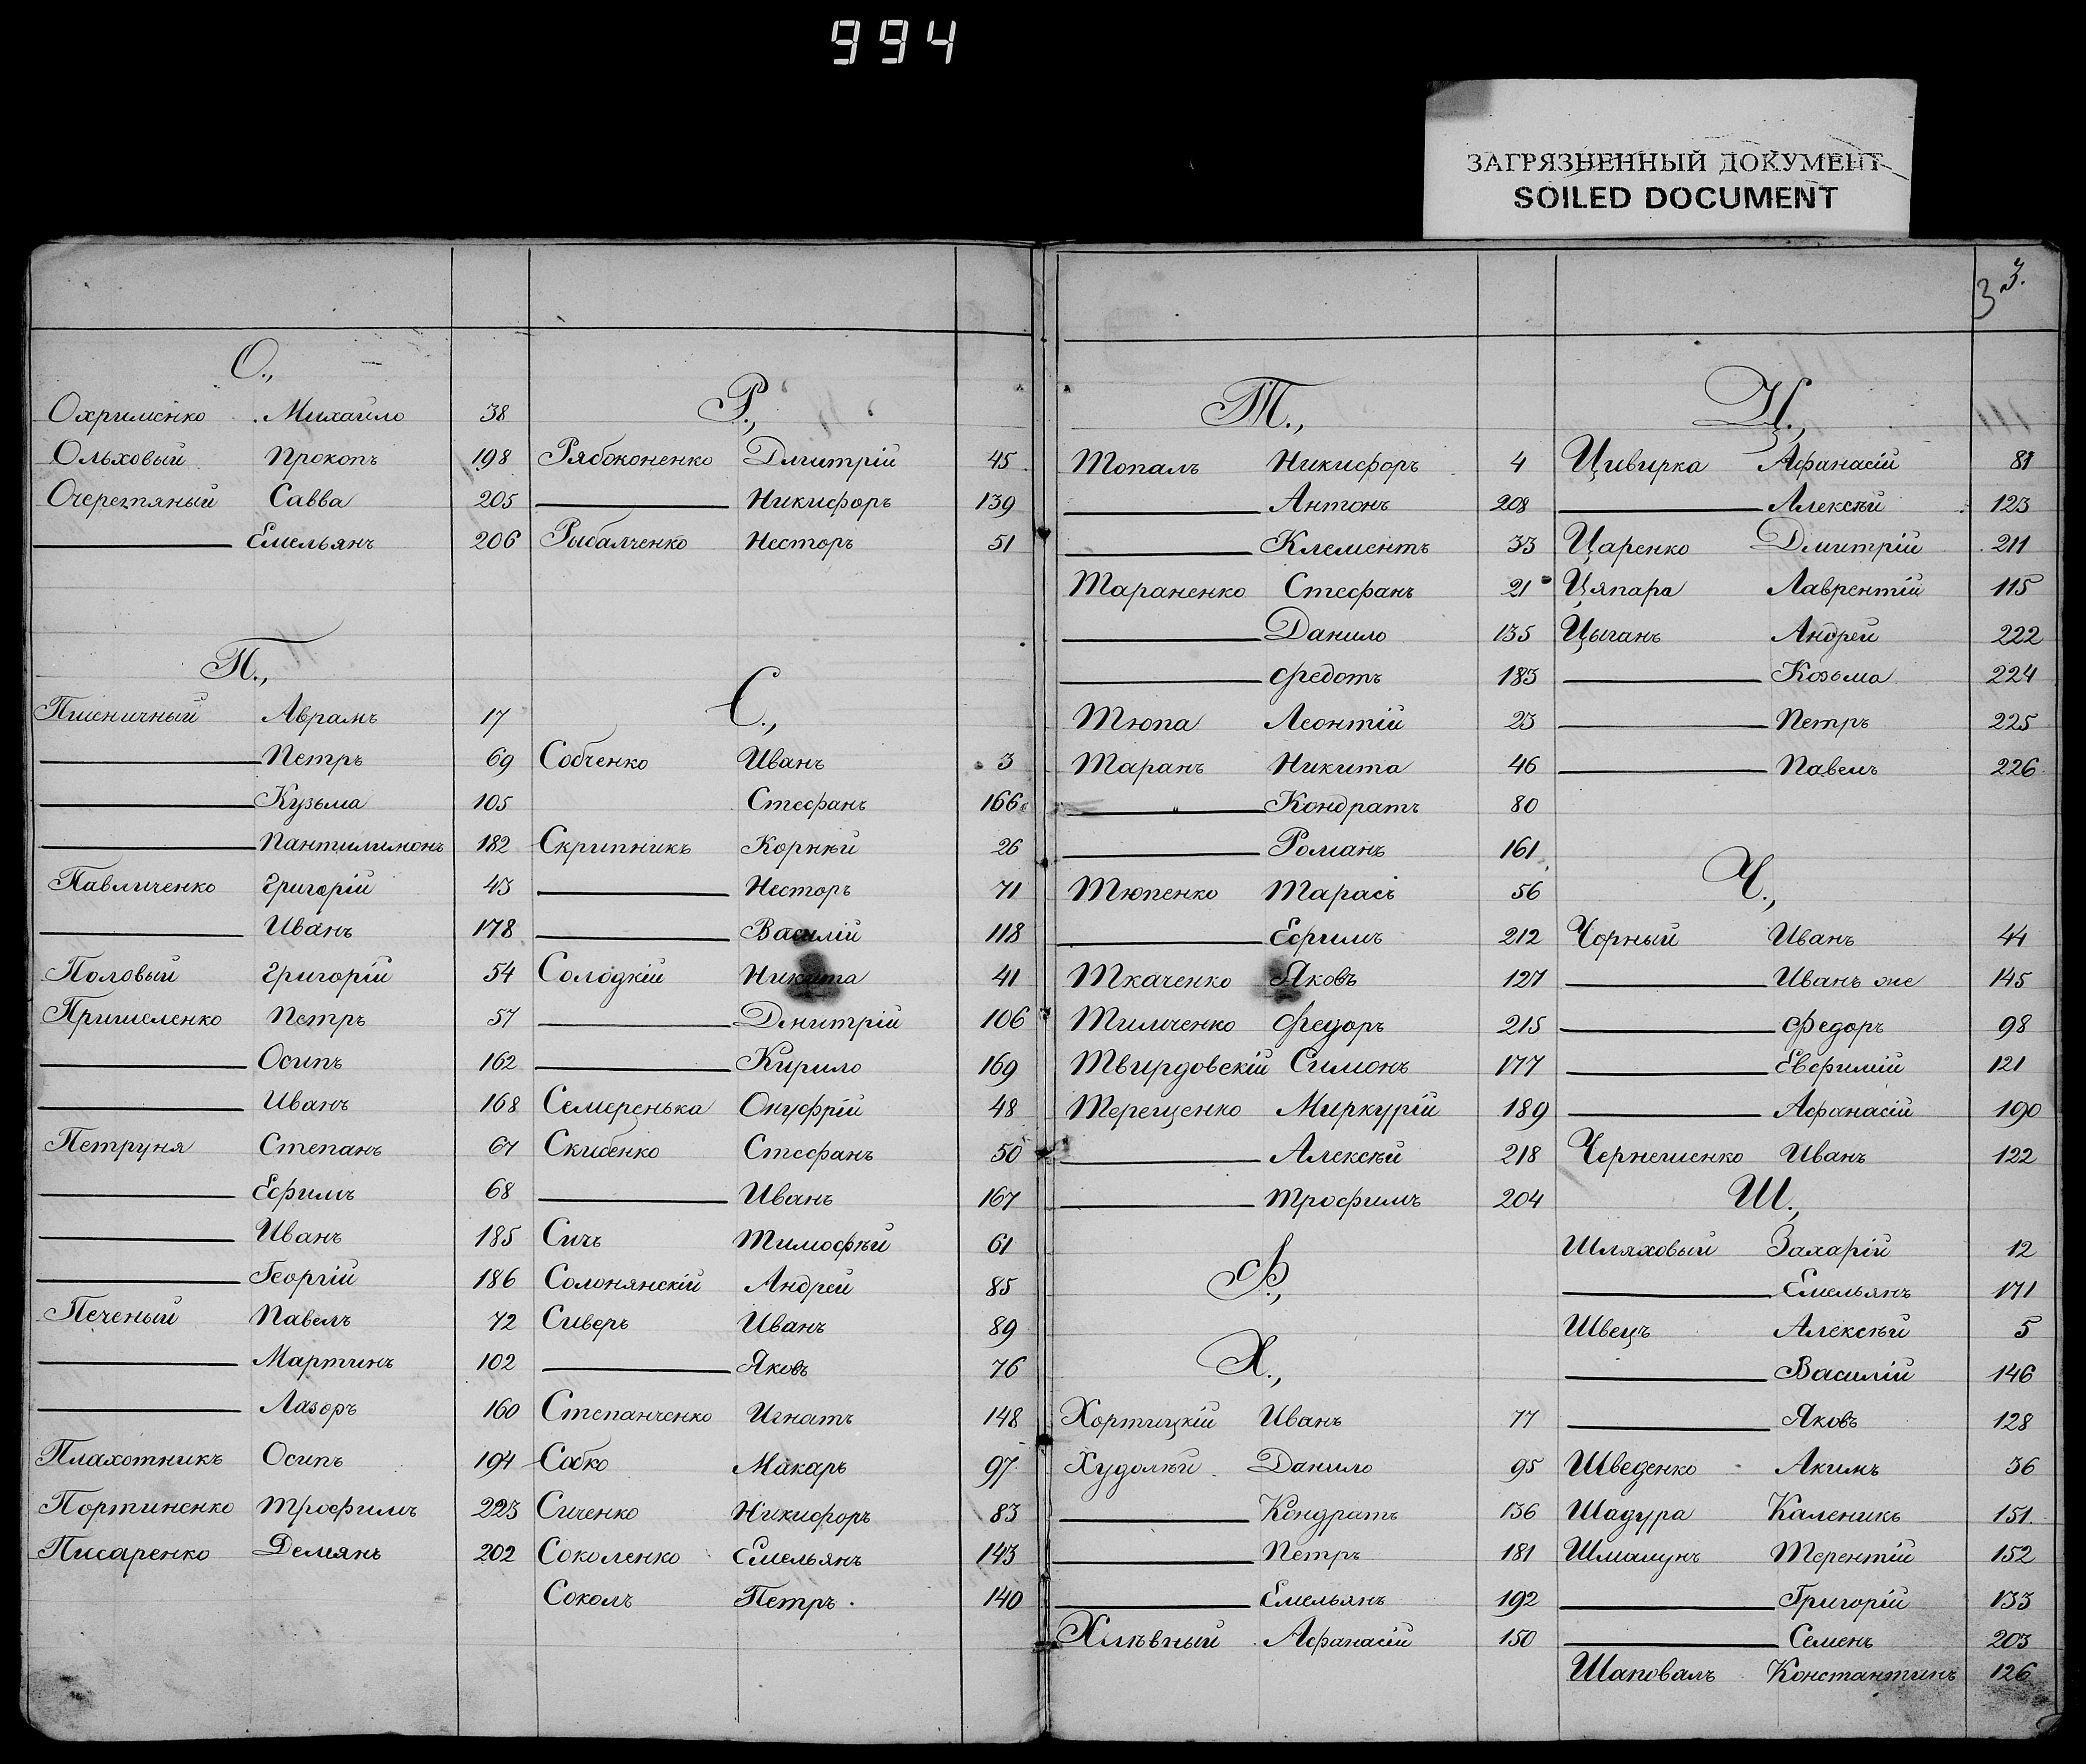 994
ЗАГРЯЗНЕННЫЙ ДОКУМЕНТ
SOILED DOCUMENT
О.,
Охрименко Михайло 38
Ольховый Прокопъ 198
Очеретяный Савва 205
——— Емельянъ 206
П.,
Пшеничный Аврамъ 17
——— Петръ 69
——— Кузьма 105
——— Пантилимонъ 182
Павличенко Григорій 43
——— Иванъ 178
Половый Григорій 54
Пришеленко Петръ 57
——— Осипъ 162
——— Иванъ 168
Петруня Степанъ 67
——— Ефимъ 68
——— Иванъ 185
——— Георгій 186
Печеный Павелъ 72
——— Мартинъ 102
——— Лазоръ 160
Плахотникъ Осипъ 194
Портиненко Трофимъ 223
Писаренко Демянъ 202
Р.,
Рябоконенко Дмитрій 45
——— Никифоръ 139
Рыбалченко Несторъ 51
С.,
Собченко Иванъ 3
Стефанъ 166
Скрипникъ Корнѣй 26
——— Несторъ 71
——— Василій 118
Солодкій Никита 41
——— Дмитрій 106
——— Кирило 169
Семеренька Онуфрій 48
Скибенко Стефанъ 50
——— Иванъ 167
Сичъ Тимофѣй 61
Солонянскій Андрей 85
Сиверъ Иванъ 89
——— Яковъ 76
Степанченко Игнатъ 148
Собко Макаръ 97
Сиченко Никифоръ 83
Соколенко Емельянъ 143
Соколъ Петръ 140
3 3.
Т.,
Топалъ Никифоръ 4
——— Антонъ 208
——— Клементъ 33
Тараненко Стефанъ 21
——— Данило 135
——— Федотъ 183
Тюпа Леонтій 23
Таранъ Никита 46
——— Кондратъ 80
——— Романъ 161
Тюпенко Тарасъ 56
——— Ефимъ 212
Ткаченко Яковъ 127
Тимченко Федоръ 215
Твирдовскій Симонъ 177
Терещенко Миркурій 189
——— Алексѣй 218
——— Трофимъ 204
Ф.,
Х.,
Хортицкій Иванъ 77
Худолѣй Данило 95
——— Кондратъ 136
——— Петръ 181
——— Емельянъ 192
Хлѣвный Афанасій 150
Ц.,
Цивирка Афанасій 81
——— Алексѣй 123
Царенко Дмитрій 211
Цяпара Лаврентій 115
Цыганъ Андрей 222
——— Козьма 224
——— Петръ 225
——— Павелъ 226
Ч.,
Чорный Иванъ 44
——— Иванъ же 145
——— Федоръ 98
——— Евфимій 121
——— Афанасій 190
Чернешенко Иванъ 122
Ш.,
Шляховый Захарій 12
——— Емельянъ 171
Швецъ Алексѣй 5
——— Василій 146
——— Яковъ 128
Шведенко Акимъ 36
Шадура Каленикъ 151
Шмалунъ Терентій 152
——— Григорій 133
——— Семенъ 203
Шаповалъ Константинъ 126